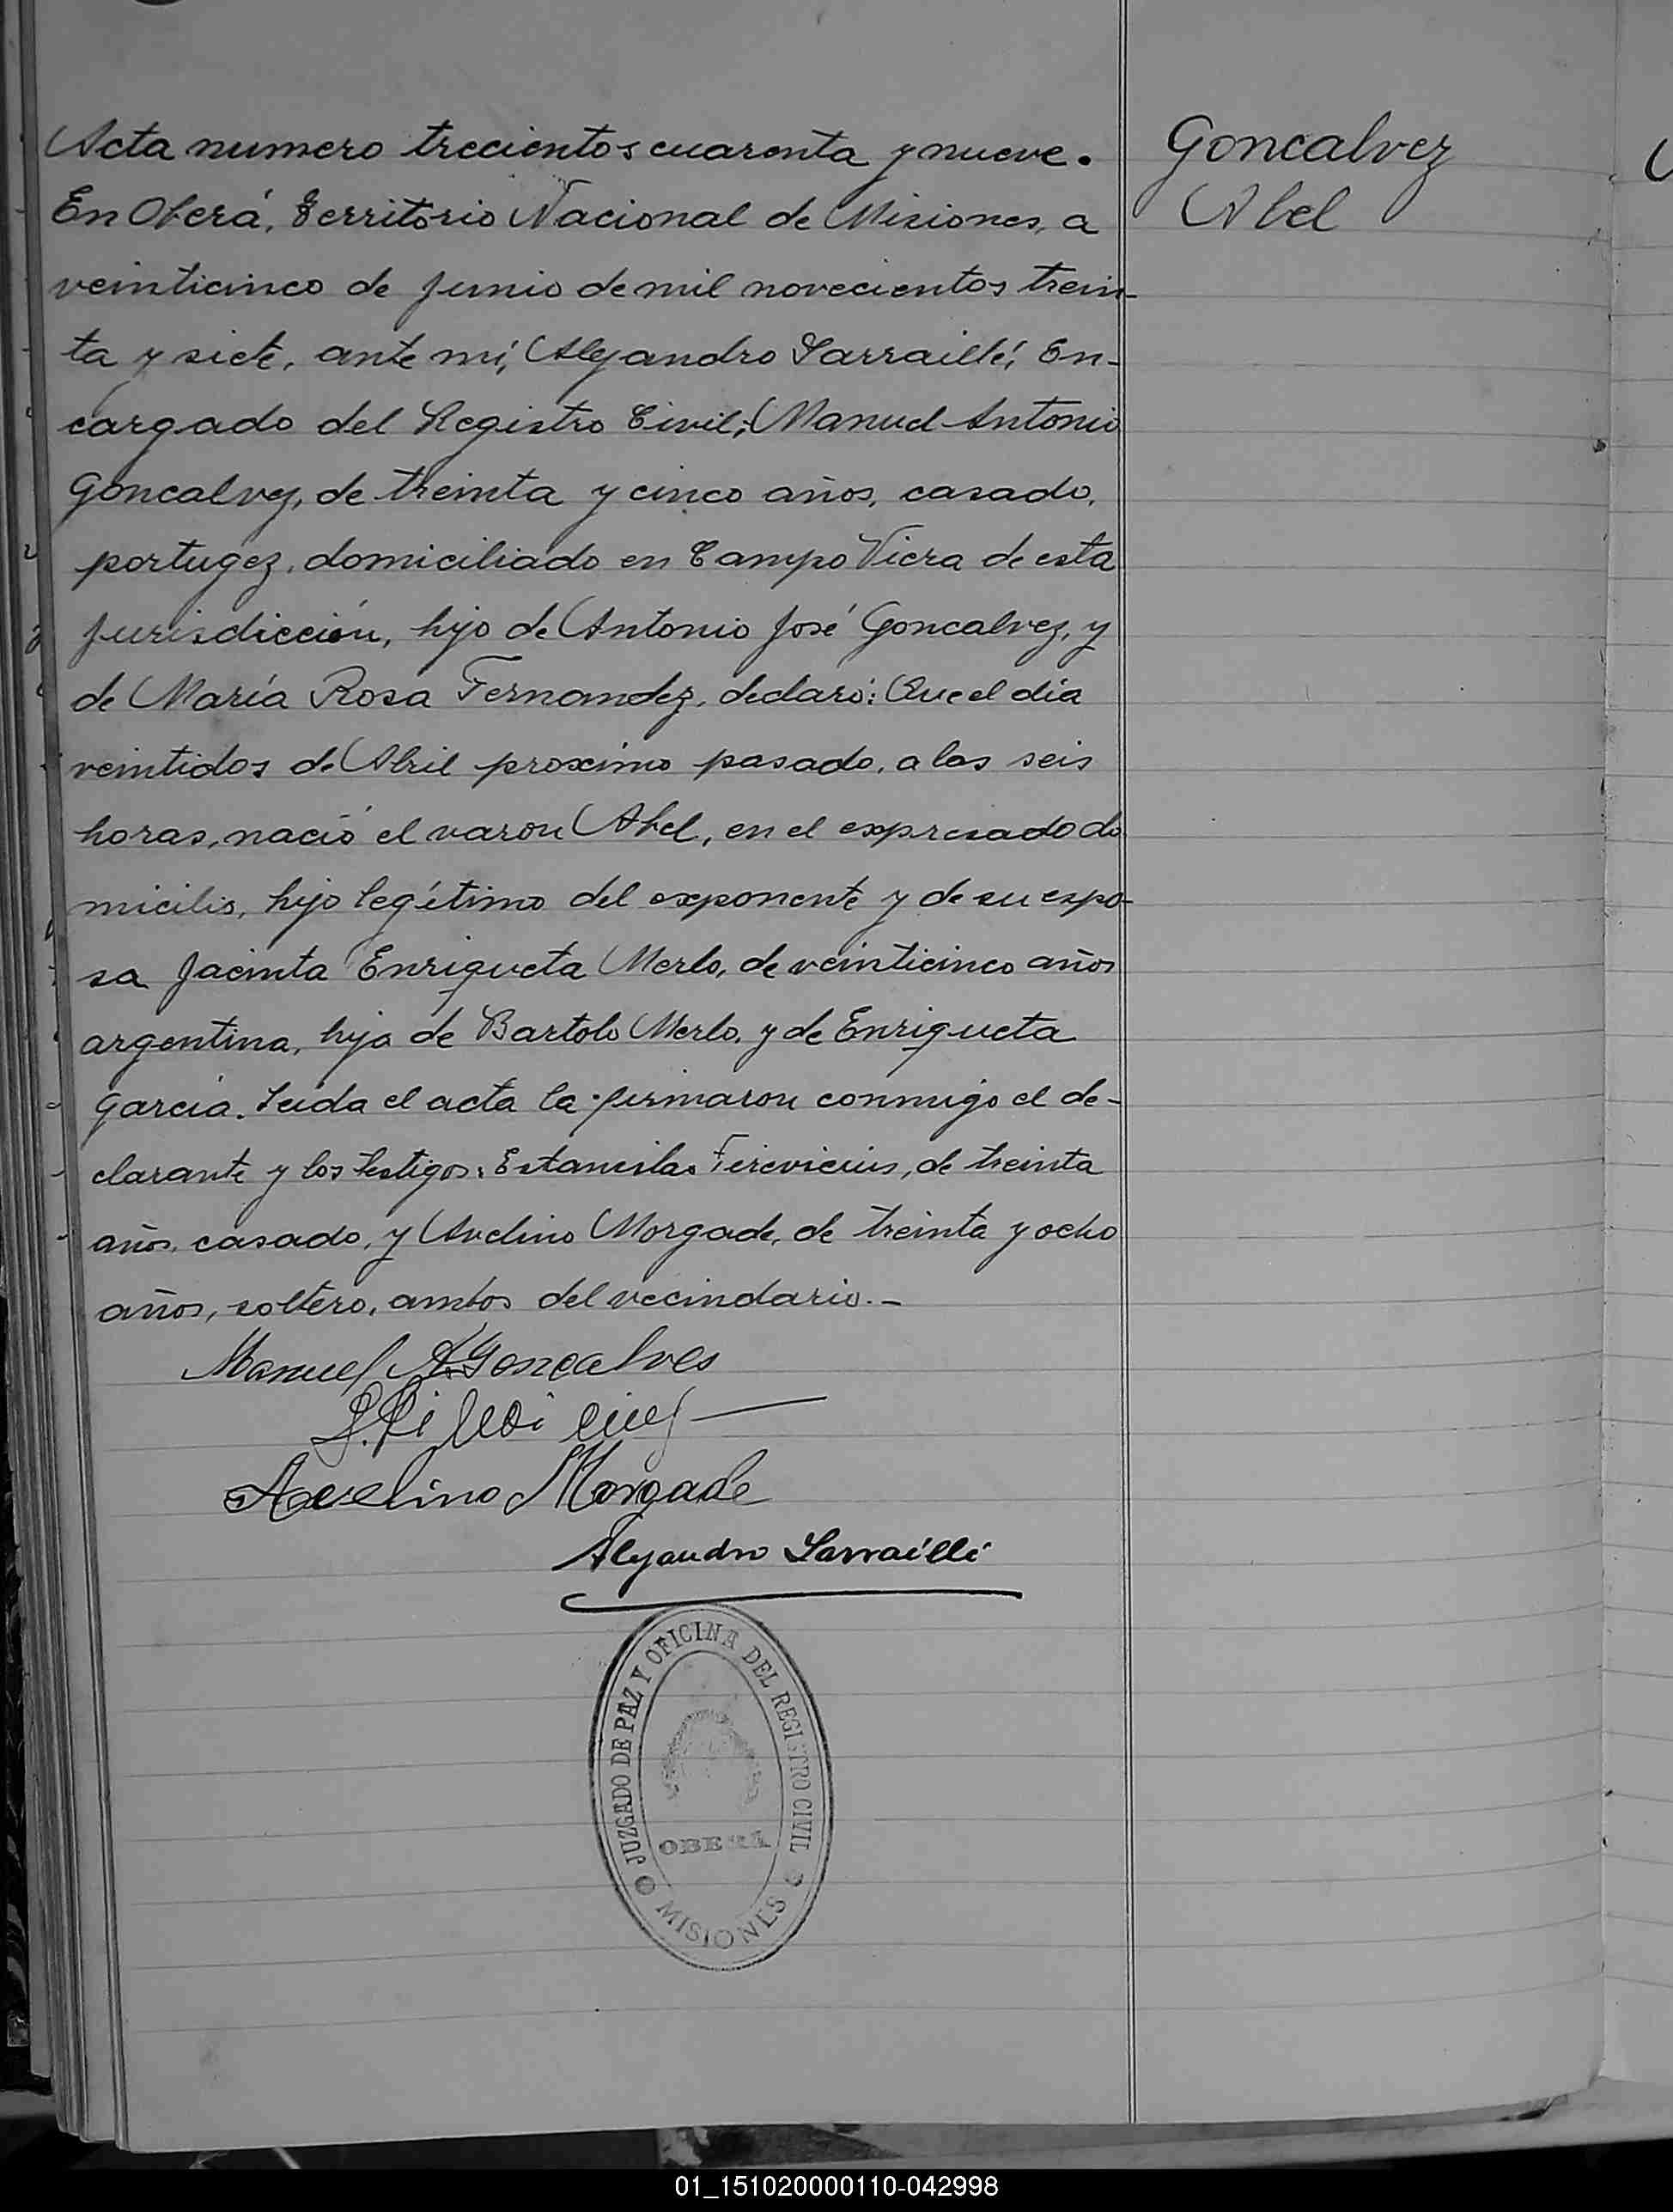 Acta numero trecientos cuarenta y nueve.
En Oberá, Territorio Nacional de Misiones, a
veinticinco de Junio de mil novecientos trein-
ta y siete, ante mí, Alejandro Sarraillé, En-
cargado del Registro Civil; Manuel Antonio
Goncalvez, de treinta y cinco años, casado,
portugez, domiciliado en Campo Viera de esta
Jurisdicción, hijo de Antonio José Goncalvez, y
de María Rosa Fernandez, declaró: Que el día
veintidos de Abril proximo pasado, a las seis
horas, nació el varon Abel, en el expresado do
micilio, hijo legítimo del exponente y de su espo-
sa Jacinta Enriqueta Merlo, de veinticinco años
argentina, hija de Bartolo Merlo, y de Enriqueta
Garcia. Leida el acta la firmaron conmigo el de-
clarante y los testigos: Estanislao, de treinta
años, casado, y Avelino Morgade, de treinta y ocho
años, soltero, ambos del vecindario.-
Manuel A Goncalves
Avelino Morgade
Alejandro Sarraillé
JUZGADO DE PAZ Y OFICINA DEL REGISTRO CIVIL
OBERÁ
MISIONES
Goncalvez
Abel
01_151020000110-042998